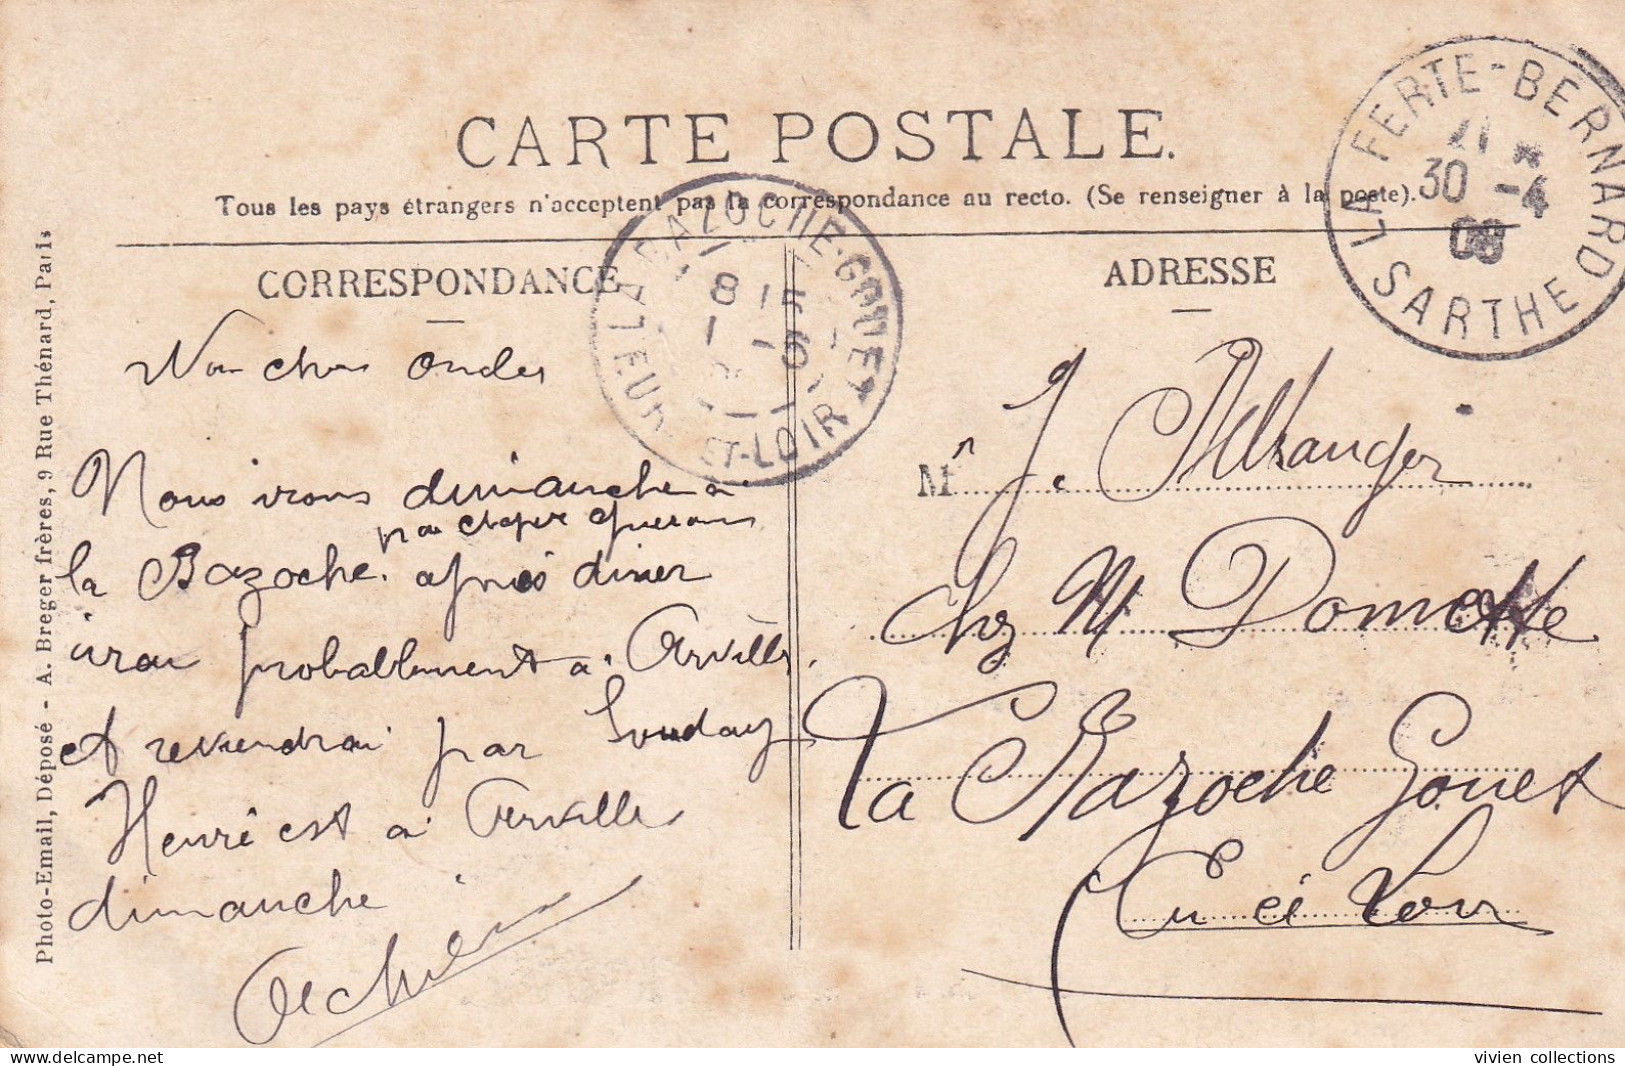 CARTE POSTALE.
Tous les pays étrangers n'acceptent pas la correspondance au recto. (Se renseigner à la poste).
CORRESPONDANCE
ADRESSE
Photo-Email, Déposé - A. Breger frères, 9 Rue Thénard, Paris
LA FERTE-BERNARD
30 -4
08
SARTHE
BAZOCHE-GOUET
8 15
1 -5
EURE-ET-LOIR
Mon cher
Nous irons dimanche à
la Bazoche. après diner
irai probablement à Arville.
et reviendrai par Souday
Henri est à Arville
dimanche
Mr J. Mauger
chez M Domette
La Bazoche Gouet
Eu et Loir
delcampe.net
vivien collections